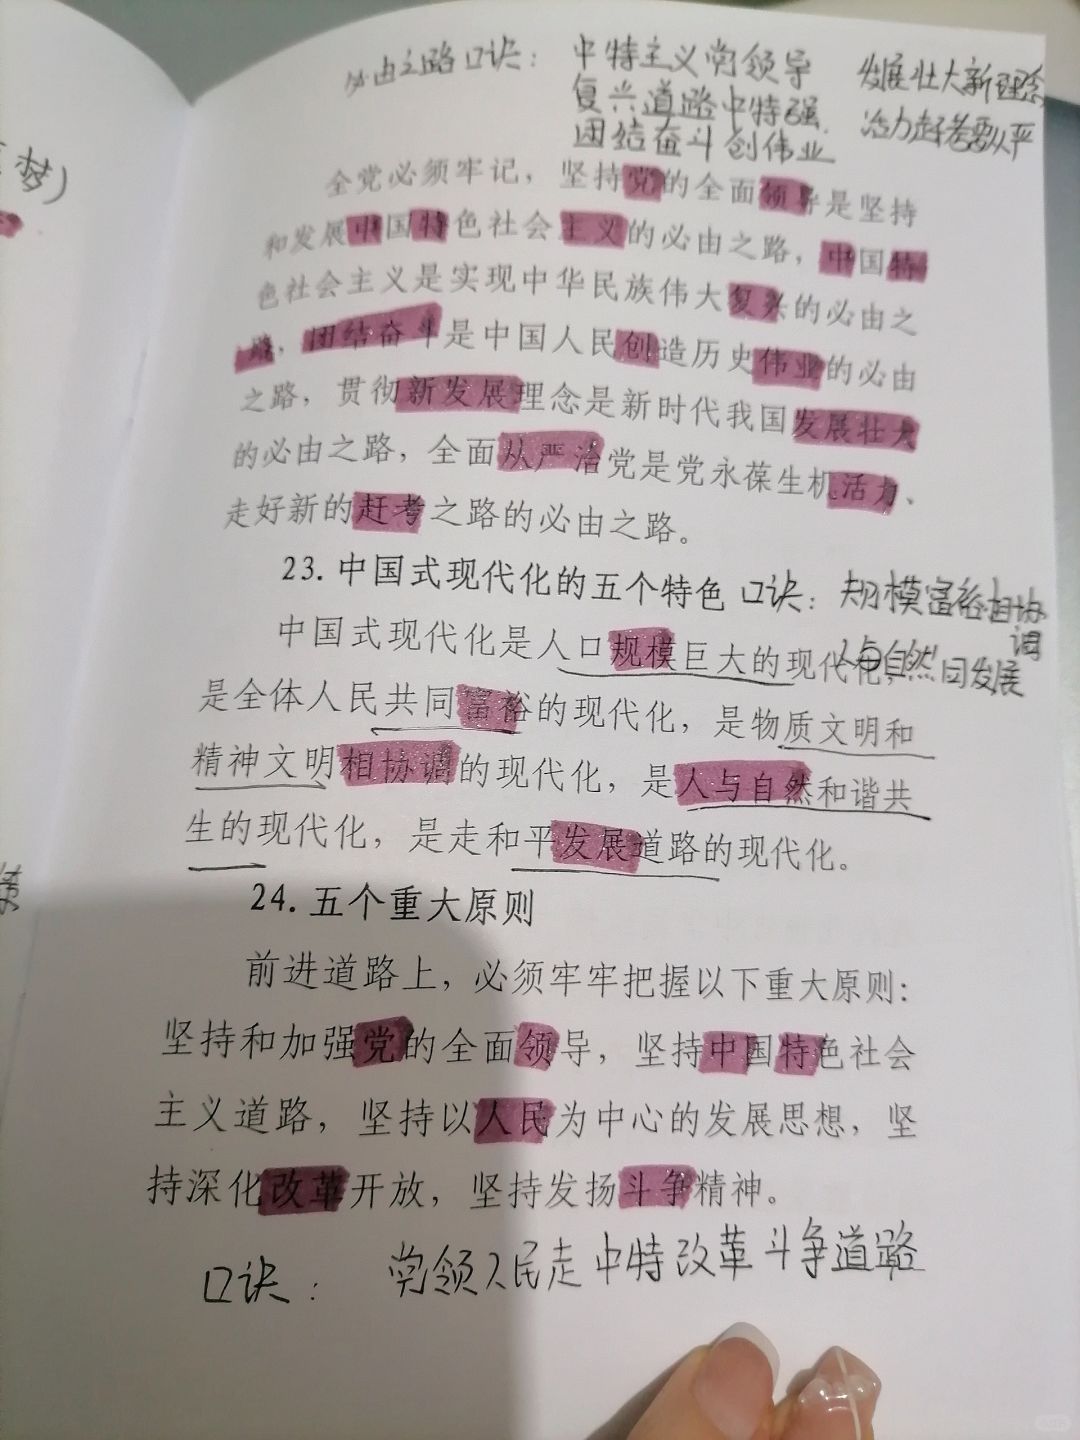 必由之路口诀：
中特主义党领导
复兴道路中特强
团结奋斗创伟业
发展壮大新理念
活力赶考要从严
全党必须牢记，坚持党的全面领导是坚持
和发展中国特色社会主义的必由之路，中国特
色社会主义是实现中华民族伟大复兴的必由之
路，团结奋斗是中国人民创造历史伟业的必由
之路，贯彻新发展理念是新时代我国发展壮大
的必由之路，全面从严治党是党永葆生机活力、
走好新的赶考之路的必由之路。
23.中国式现代化的五个特色
口诀：规模富裕相协
调
人与自然同发展
中国式现代化是人口规模巨大的现代化，
是全体人民共同富裕的现代化，是物质文明和
精神文明相协调的现代化，是人与自然和谐共
生的现代化，是走和平发展道路的现代化。
24.五个重大原则
前进道路上，必须牢牢把握以下重大原则：
坚持和加强党的全面领导，坚持中国特色社会
主义道路，坚持以人民为中心的发展思想，坚
持深化改革开放，坚持发扬斗争精神。
口诀：党领人民走中特改革斗争道路
梦）